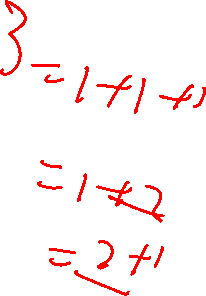 3=1+1+1
=1+2
=2+1